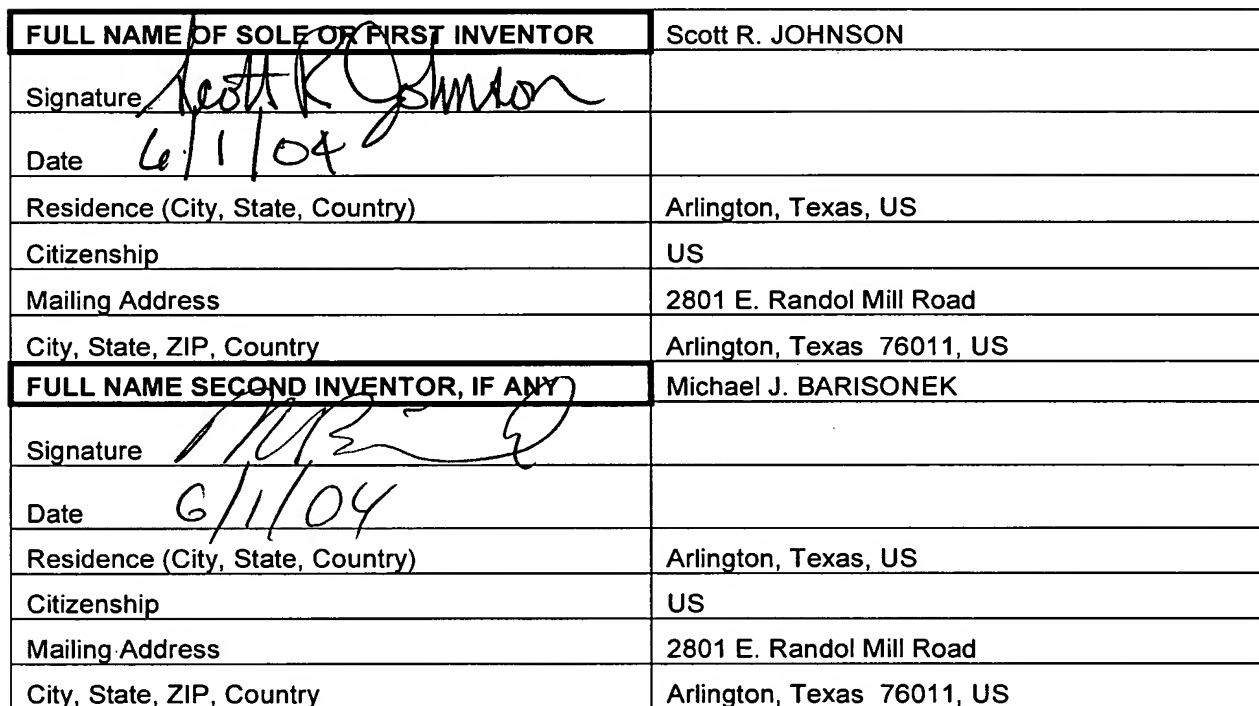 FULL NAME OF SOLE OR FIRST INVENTOR Scott R. JOHNSON
Signature Scott R Johnson
Date 6/1/04
Residence (City, State, Country) Arlington, Texas, US
Citizenship US
Mailing Address 2801 E. Randol Mill Road
City, State, ZIP, Country Arlington, Texas 76011, US
FULL NAME SECOND INVENTOR, IF ANY Michael J. BARISONEK
Signature
Date 6/1/04
Residence (City, State, Country) Arlington, Texas, US
Citizenship US
Mailing Address 2801 E. Randol Mill Road
City, State, ZIP, Country Arlington, Texas 76011, US